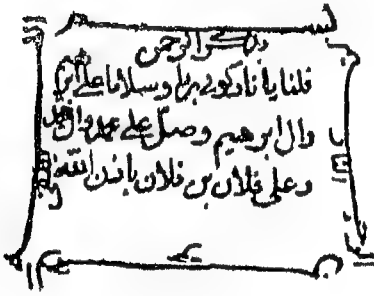 قلنا يا نار كوني بردا وسلاما على ابراهيم
وال ابرهيم وصل على محمد وال محمد
وعلى فلان بن فلان باذن الله